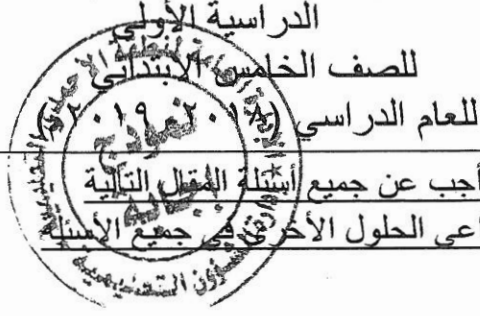 الدراسية الأولى
للصف الخامس الابتدائي
للعام الدراسي (٢٠١٨ - ٢٠١٩)
أجب عن جميع أسئلة المقال التالية
اعى الحلول الأخرى في جميع الأسئلة
نموذج